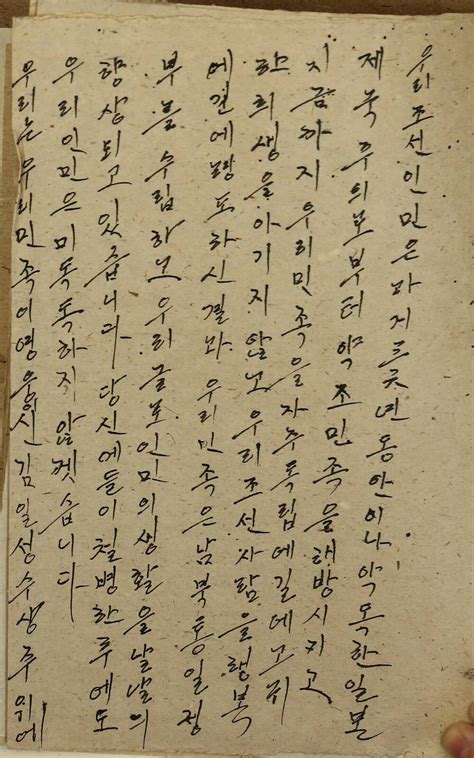 우리조선인민은과거三六년동안이나악독한일본
제국주의로부터약조민족을해방시키고
지금까지우리민족을자주독립에길데고귀
한희생을아기지않고우리조선사람을행복
에견에량도하신결과우리민족은남북통일정
부를수립하고우리글로인민의생활을날날의
향상되고있습니다당신에들이철병한후에도
우리인민은미독독하지않겟습니다
우리는우리민족이영웅신김일성수생주위에